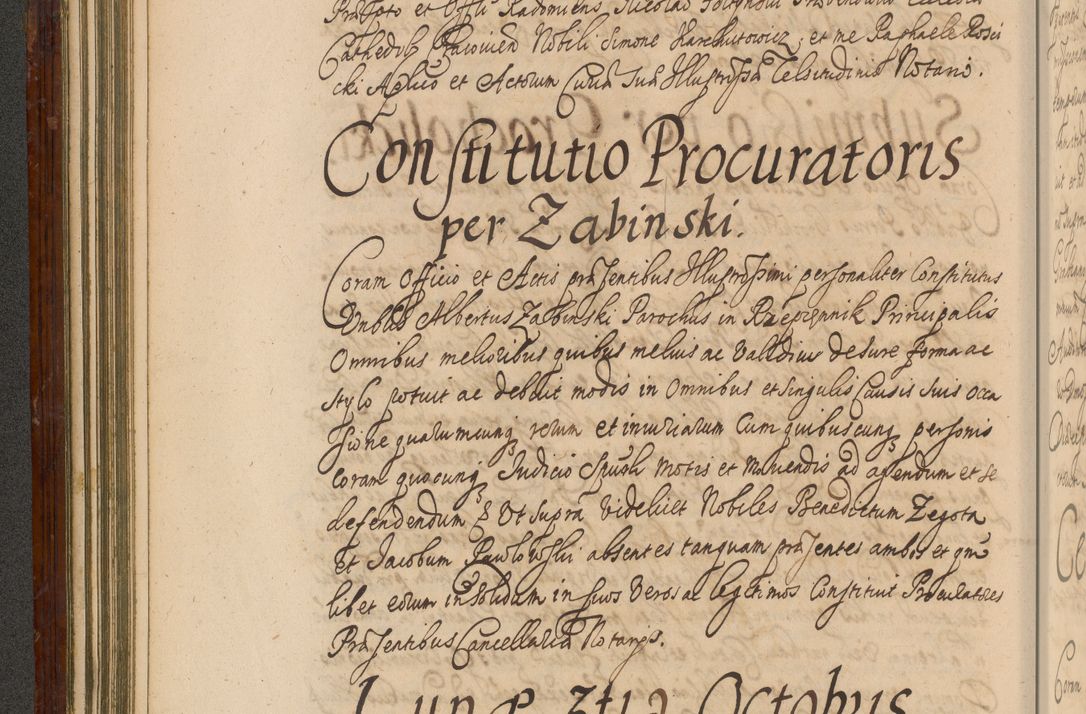 Præpto et Offli Radomiens, Nicolao
Cathedlis Cracovien Nobili Simone Harchutowicz, et me Raphaele Rosci
cki Aplico et Actorum Curiæ Suæ Illustrissimæ Celsitudinis Notario.
Constitutio Procuratoris
per Zabinski.
Coram Officio et Actis præsentibus Illustrissimi personaliter Constitutus
Dnbus Albertus Zabinski Parochus in Rzepiennik Principalis
Omnibus melioribus quibus melius ac Validius de Jure forma ac
stylo potuit ac debuit modis in Omnibus et Singulis Causis Suis occa
sione quarumcunq rerum et iniuriarum Cum quibuscunq personis
Coram quocunq Judicio Spuali Motis et Movendis ad agendum et se
defendendum Ut Supra Videlicet Nobiles Benedictum Zegota
et Jacobum Pawlowski absentes tanquam præsentes ambos et qm
libet eorum in Solidum in suos Veros ac legitimos Constituit Procuratores
Præsentibus Cancellariæ Notarijs.
Lunæ 3tia Octobris